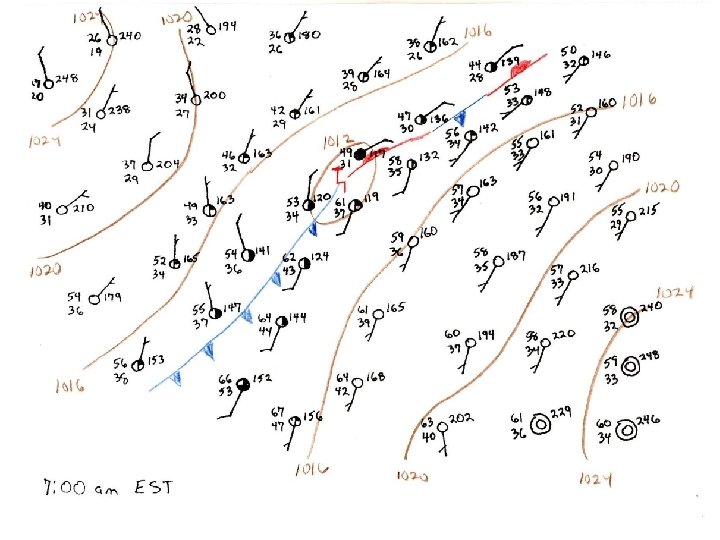 1024
1020
28 194
22
26 240
19
36 180
26
38 162
26
1016
50 146
32
44 139
28
19 248
20
39 164
28
34 200
27
53 148
33
1016
31 238
24
42 161
29
47 136
30
52 160
31
1024
56 142
34
1012
55 161
33
46 163
32
49
31
37 204
29
58 132
35
54 190
30
57 163
34
1020
40 210
31
49 163
33
53 120
34
61 119
37
56 191
32
55 215
29
59 160
36
52 165
34
54 141
36
62 124
43
58 187
35
1020
57 216
33
54 179
36
1024
55 147
37
64 144
44
61 165
39
58 240
32
60 194
37
58 220
34
56 153
38
59 248
33
1016
66 152
53
64 168
42
67 156
47
63 202
40
61 229
36
60 246
34
1016
1020
1024
7:00 am EST